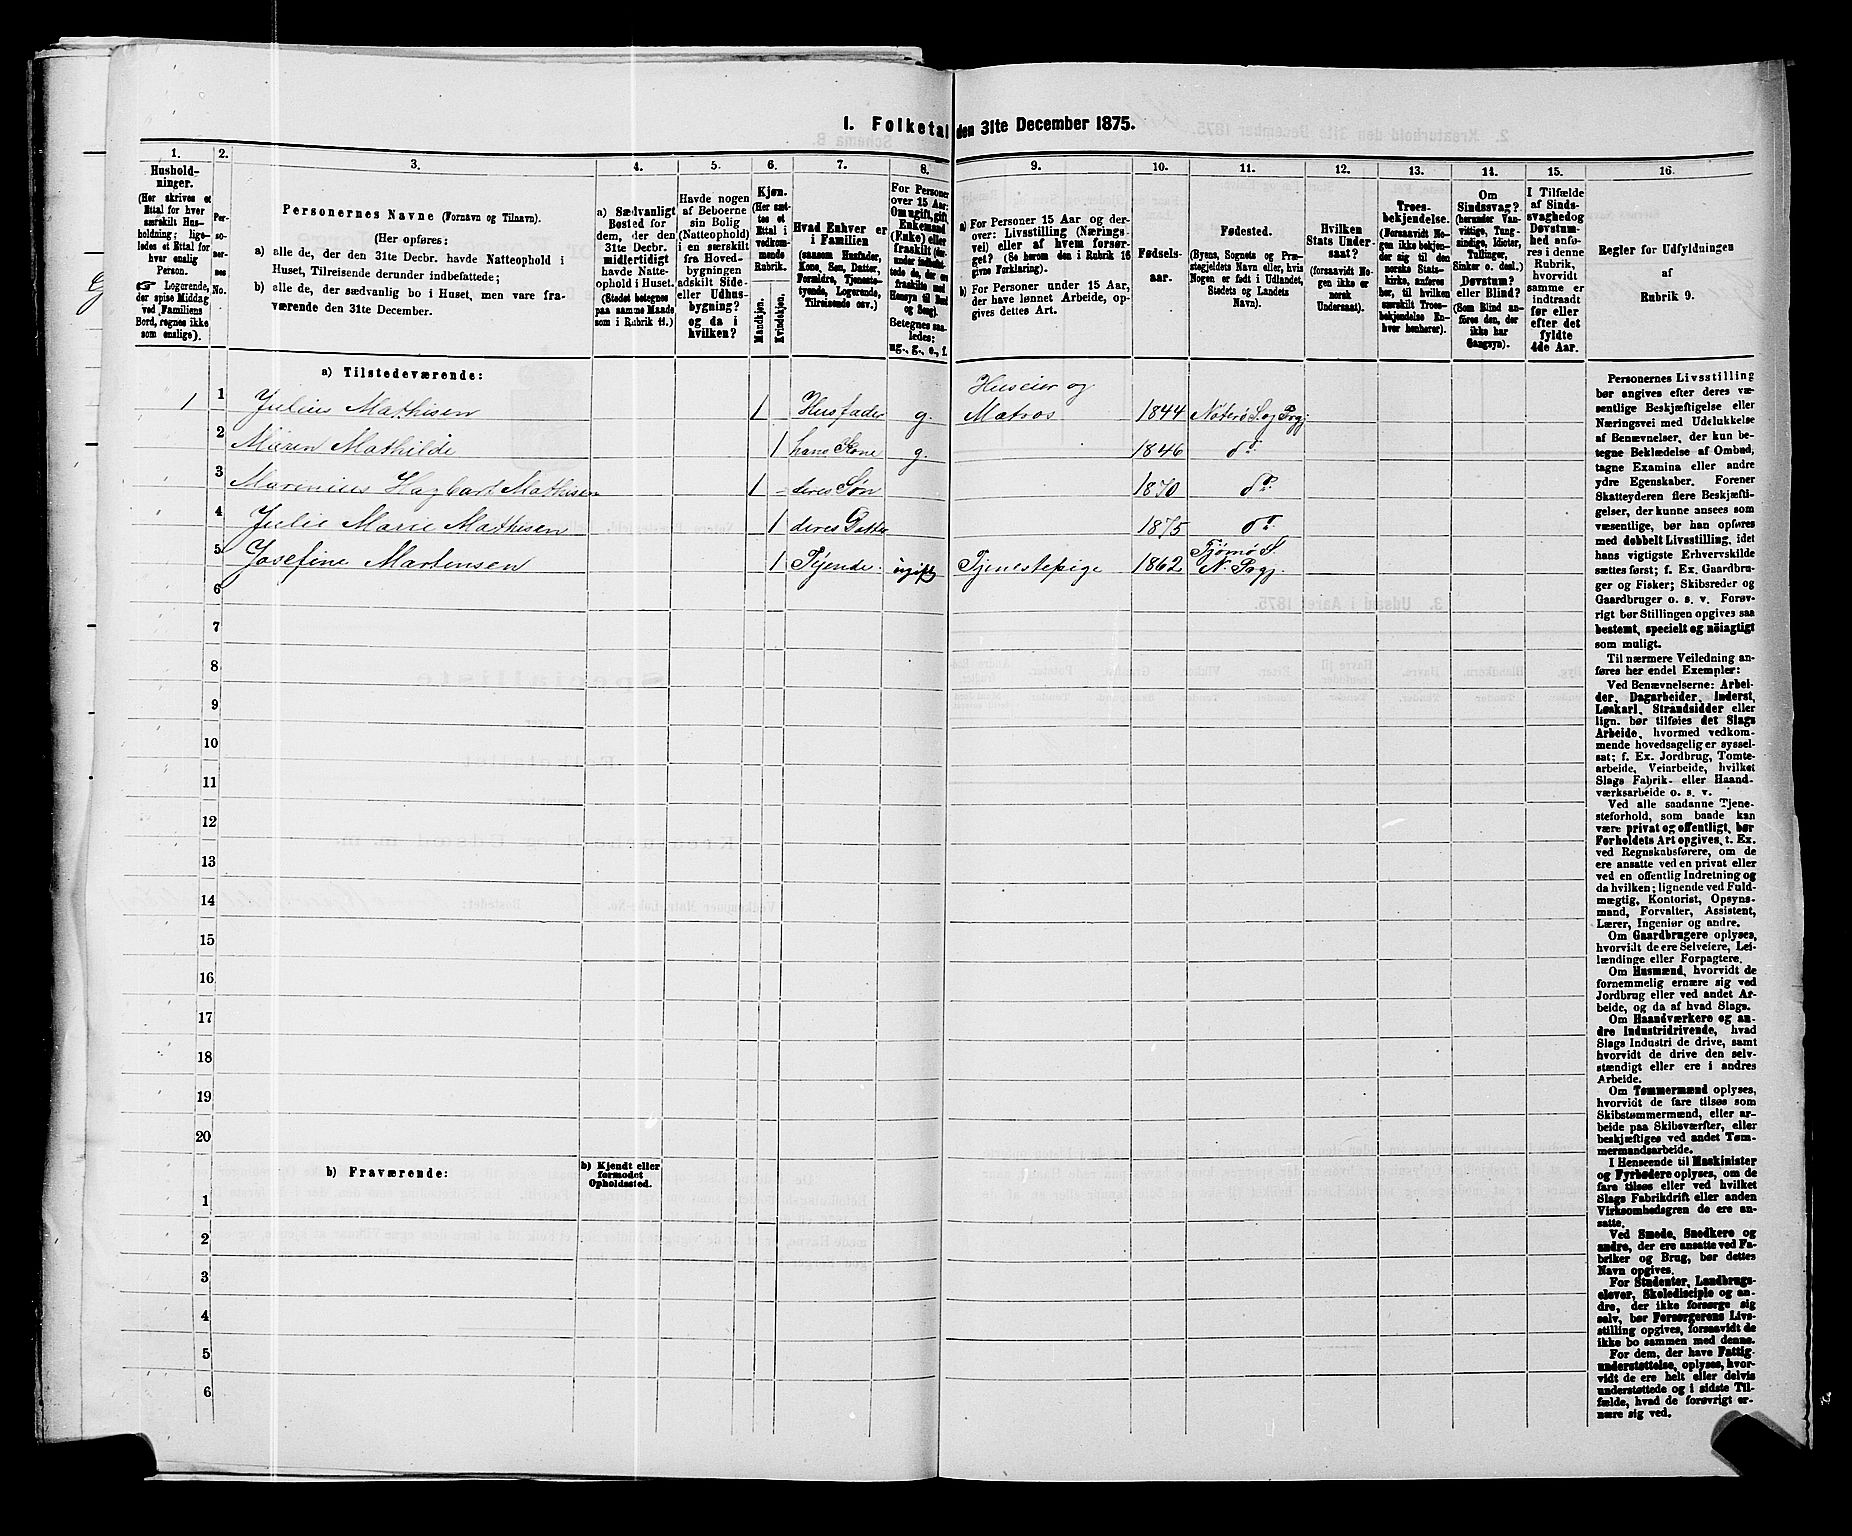 I. Folketal den 31te December 1875.
1. 2. 3. 4. 5. 6. 7. 8. 9. 10. 11. 12. 13. 14. 15. 16.
Hushold-
ninger.
(Her skrives et
Ettal for hver
særskilt Hus-
holdning; lige-
ledes et Ettal for
hver enslig
Person.
☞ Logerende,
der spise Middag
ved Familiens
Bord, regnes ikke
som enslige).
Per-
so-
ner-
nes
No.
Personernes Navne (Fornavn og Tilnavn).
(Her opføres:
a) alle de, der den 31te Decbr. havde Natteophold i
Huset, Tilreisende derunder indbefattede;
b) alle de, der sædvanlig bo i Huset, men vare fra-
værende den 31te December.
a) Sædvanligt
Bosted for
dem, der den
31te Decbr.
midlertidigt
havde Natte-
ophold i Huset.
(Stedet betegnes
paa samme Maade
som i Rubrik 11.)
Havde nogen
af Beboerne
sin Bolig
(Natteophold)
i en særskilt
fra Hoved-
bygningen
adskilt Side-
eller Udhus-
bygning?
og da i
hvilken?
Kjøn.
(Her sæt-
tes et
Ettal i
vedkom-
mende
Rubrik.
Mandkjøn.
Kvindekjøn.
Hvad Enhver er
i Familien
(saasom Husfader,
Kone, Søn, Datter,
Forældre, Tjeneste-
tyende, Logerende,
Tilreisende osv.)
For Personer
over 15 Aar:
Om ugift, gift,
Enkemand
(Enke) eller
fraskilt
Betegnes saa-
ledes:
ug., g., e., f.
a) For Personer 15 Aar og der-
over: Livsstilling (Nærings-
vei) eller af hvem forsør-
get? (Se herom den i Rubrik 16
givne Forklaring).
b) For Personer under 15 Aar,
der have lønnet Arbeide, op-
gives dettes Art.
Fødsels-
aar.
Fødested.
(Byens, Sognets og Præ-
stegjeldets Navn eller, hvis
Nogen er født i Udlandet,
Stedets og Landets
Navn).
Hvilken
Stats Under-
saat?
(forsaavidt No-
gen ikke er
norsk
Undersaat).
Troes-
bekjendelse.
(Forsaavidt No-
gen ikke bekjen-
der sig til den
norske Stats-
kirke, anføres
her, til hvilken
særskilt Troes-
bekjendelse En-
hver henhører).
Om
Sindssvag?
(herunder Van-
vittige, Tung-
sindige, Idioter,
Tullinger,
Sinker o. desl.)
Døvstum?
eller Blind?
(Som Blind an-
føres den, der
ikke har
Gangsyn).
I Tilfælde
af Sinds-
svaghed og
Døvstum-
hed anfø-
res i denne
Rubrik,
hvorvidt
samme er
indtraadt
før eller
efter det
fyldte
4de Aar.
Regler for Udfyldningen
af
Rubrik 9.
a) Tilstedeværende:
Huseier og
1 1 Julius Mathisen 1 Husfader g. Matros 1844 Nøterø S. og Prgj
2 Maren Mathilde 1 hans Kone g. 1846 do
3 Marenius Hagbart Mathisen 1 deres Søn 1870 do
4 Julie Marie Mathisen 1 deres Datter 1875 do
Tjømø S.
5 Josefine Martensen 1 Tyende. ugift Tjenestepige 1862 N. Prgj.
6
7
8
9
10
11
12
13
14
15
16
17
18
19
20
b) Fraværende:
b) Kjendt eller
formodet
Opholdssted.
1
2
3
4
5
6
Personernes Livsstilling
bør angives efter deres væ-
sentlige Beskjæftigelse eller
Næringsvei med Udelukkelse
af Benævnelser, der kun be-
tegne Beklædelse af Ombud,
tagne Examina eller andre
ydre Egenskaber. Forener
Skatteyderen flere Beskjæfti-
gelser, der kunne ansees som
væsentlige, bør han opføres
med dobbelt Livsstilling, idet
hans vigtigste Erhvervskilde
sættes først; f. Ex. Gaardbru-
ger og Fisker; Skibsreder og
Gaardbruger o. s. v. Forøv-
rigt bør Stillingen opgives saa
bestemt, specielt og nöiagtigt
som muligt.
Til nærmere Veiledning an-
føres her endel Exempler:
Ved Benævnelserne: Arbei-
der, Dagarbeider, Inderst,
Løskarl, Strandsidder eller
lign. bør tilføies det Slags
Arbeide, hvormed vedkom-
mende hovedsagelig er syssel-
sat; f. Ex. Jordbrug, Tomte-
arbeide, Veiarbeide, hvilket
Slags Fabrik- eller Haand-
værksarbeide o. s. v.
Ved alle saadanne Tjene-
steforhold, som baade kan
være privat og offentligt, bør
Forholdets Art opgives, t. Ex.
ved Regnskabsførere, om de
ere ansatte ved en privat eller
ved en offentlig Indretning og
da hvilken; lignende ved Fuld-
mægtig, Kontorist, Opsyns-
mand, Forvalter, Assistent,
Lærer, Ingeniør og andre.
Om Gaardbrugere oplyses,
hvorvidt de ere Selveiere, Lei-
lændinge eller Forpagtere.
Om Husmænd, hvorvidt de
fornemmelig ernære sig ved
Jordbrug eller ved andet Ar-
beide, og da af hvad Slags.
Om Haandværkere og an-
dre Industridrivende, hvad
Slags Industri de drive, samt
hvorvidt de drive den selv-
stændigt eller ere i andres
Arbeide.
Om Tømmermænd oplyses,
hvorvidt de fare tilsøs som
Skibstømmermænd, eller ar-
beide paa Skibsværfter, eller
beskjæftiges ved andet Tøm-
mermandsarbeide.
I Henseende til Maskinister
og Fyrbødere oplyses, om de
fare tilsøs eller ved hvilket
Slags Fabrikdrift eller anden
Virksomhedsgren de ere an-
satte.
Ved Smede, Snedkere og
andre, der ere ansatte ved Fa-
briker og Brug, bør dettes
Navn opgives.
For Studenter, Landbrugs-
elever, Skoledisciple og an-
dre, der ikke forsørge sig
selv, bør Forsørgerens Livs-
stilling opgives, forsaavidt de
ikke bo sammen med denne.
For dem, der have Fattig-
understøttelse, oplyses, hvor-
vidt de ere helt eller delvis
understøttede og i sidste Til-
fælde, hvad de forøvrigt er-
nære sig ved.